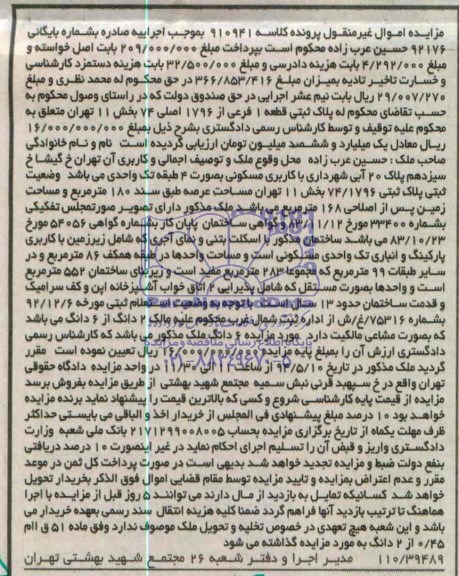 مزایده اموال غیرمنقول پرونده کلاسه ۹۱۰۹۴۱ بموجب اجراییه صادره بشماره بایگانی
۹۲۱۷۶ حسین عرب زاده محکوم است بپرداخت مبلغ ۲۰۹/۰۰۰/۰۰۰ بابت اصل خواسته و
مبلغ ۴/۲۹۲/۰۰۰ بابت هزینه دادرسی و مبلغ ۳۲/۵۰۰/۰۰۰ بابت هزینه دستمزد کارشناسی
و خسارت تاخیر تادیه بمیزان مبلغ ۳۶۶/۸۵۳/۴۱۶ در حق محکوم له محمد نظری و مبلغ
۲۹/۰۰۷/۲۷۰ ریال بابت نیم عشر اجرایی در حق صندوق دولت که در راستای وصول محکوم به
حسب تقاضای محکوم له پلاک ثبتی قطعه ۱ فرعی از ۱۷۹۶ اصلی ۷۴ بخش ۱۱ تهران متعلق به
محکوم علیه توقیف و توسط کارشناس رسمی دادگستری بشرح ذیل بمبلغ ۱۶/۰۰۰/۰۰۰/۰۰۰
ریال معادل یک میلیارد و ششصد میلیون تومان ارزیابی گردیده است نام و نام خانوادگی
صاحب ملک : حسین عرب زاده محل وقوع ملک و توصیف اجمالی و کاربری آن تهران خ گیشا خ
سیزدهم پلاک ۲۰ آبی شهرداری با کاربری مسکونی بصورت ۴ طبقه تک واحدی می باشد وضعیت
ثبتی پلاک ثبتی ۷۴/۱۷۹۶ بخش ۱۱ تهران مساحت عرصه طبق سند ۱۸۰ مترمربع و مساحت
زمین پس از اصلاحی ۱۶۸ مترمربع می باشد ملک مذکور دارای تصویر صورتمجلس تفکیکی
بشماره ۳۳۴۰۰ مورخ ۸۳/۱۱/۱۲ و گواهی ساختمان پایان کار بشماره گواهی ۵۴۰۵۶ مورخ
۸۳/۱۰/۲۳ می باشد ساختمان مذکور با اسکلت بتنی و نمای آجری که شامل زیرزمین با کاربری
پارکینگ و انباری تک واحدی مسکونی است و مساحت واحدها در طبقه همکف ۸۶ مترمربع و در
سایر طبقات ۹۹ مترمربع که مجموعا ۲۸۳ مترمربع مفید است و زیربنای ساختمان ۵۵۲ مترمربع
است و واحدها بصورت مستقل که شامل پذیرایی ۲ اتاق خواب آشپزخانه اپن و کف سرامیک
و قدمت ساختمان حدود ۱۳ سال است با توجه به وضعیت استعلام ثبتی مورخه ۹۲/۱۲/۶
بشماره ۷۵۳۱۶/غ/ش از اداره ثبت شمال غرب محکوم علیه مالک ۲ دانگ از ۶ دانگ می باشد
که بصورت مشاعی مالکیت دارد مورد مزایده ۶ دانگ ملک مذکور می باشد که کارشناس رسمی
دادگستری ارزش آن را بمبلغ پایه مزایده ۱۶/۰۰۰/۰۰۰/۰۰۰ ریال تعیین نموده است مقرر
گردید ملک مذکور در تاریخ ۹۴/۵/۱۰ از ساعت ۱۱ الی ۱۱/۳۰ در واحد مزایده دادگاه حقوقی
تهران واقع در خ سپهبد قرنی نبش سمیه مجتمع شهید بهشتی از طریق مزایده بفروش برسد
مزایده از قیمت پایه کارشناسی شروع و کسی که بالاترین قیمت را پیشنهاد نماید برنده مزایده
خواهد بود ۱۰ درصد مبلغ پیشنهادی فی المجلس از خریدار اخذ و الباقی می بایستی حداکثر
ظرف مهلت یکماه از تاریخ برگزاری مزایده بحساب ۲۱۷۱۲۹۹۰۰۸۰۰۵ بانک ملی شعبه وزارت
دادگستری واریز و قبض آن را تسلیم اجرای احکام نماید در غیر اینصورت ۱۰ درصد دریافتی
بنفع دولت ضبط و مزایده تجدید خواهد شد بدیهی است در صورت پرداخت کل ثمن در موعد
مقرر و عدم اعتراض بمزایده و تایید مزایده توسط مقام قضایی اموال فوق الذکر بخریدار تحویل
خواهد شد کسانیکه تمایل به بازدید از مال دارند می توانند ۵ روز قبل از مزایده با اجرا
هماهنگ تا ترتیب بازدید آنها فراهم گردد ضمنا کلیه هزینه انتقال سند رسمی بعهده خریدار می
باشد و این شعبه هیچ تعهدی در خصوص تخلیه و تحویل ملک موصوف ندارد وفق ماده ۵۱ ق اام
۰/۴۵ از ۲ دانگ به مورد مزایده گذاشته می شود
۱۱۰/۳۹۴۸۹ مدیر اجرا و دفتر شعبه ۲۶ مجتمع شهید بهشتی تهران